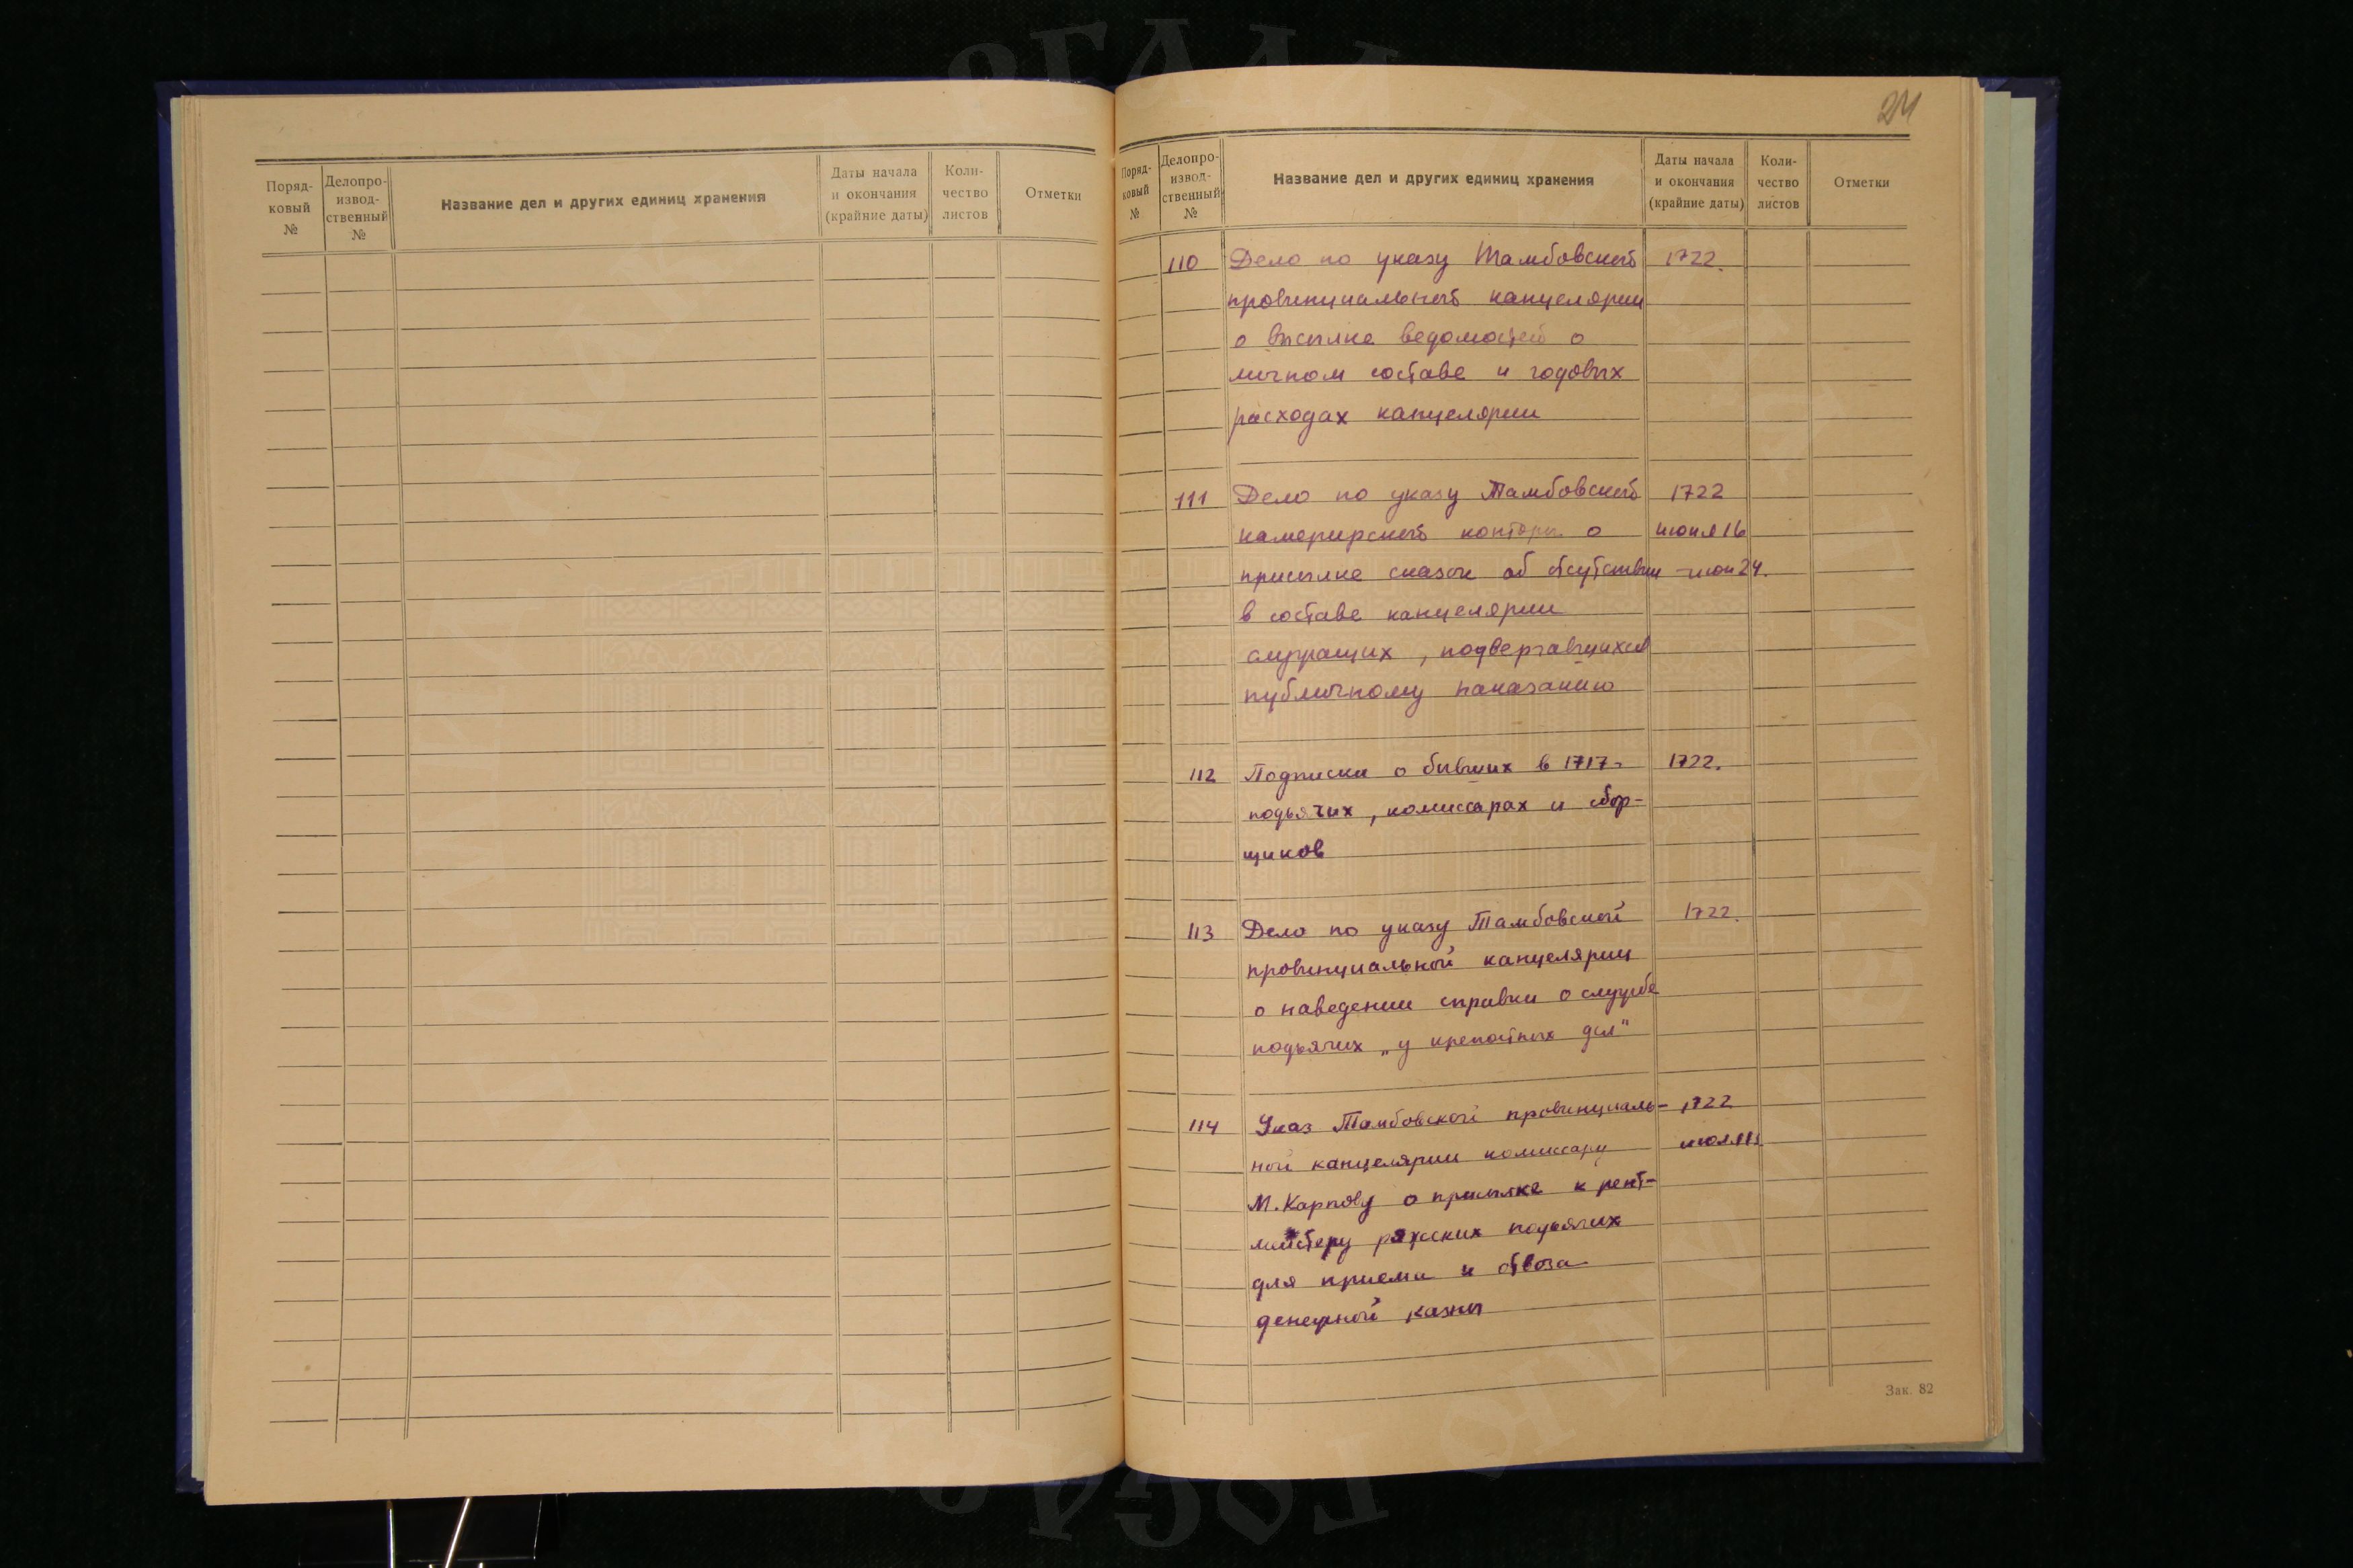 Поряд-
ковый
№
Делопро-
извод-
ственный
№
Название дел и других единиц хранения
Даты начала
и окончания
(крайние даты)
Коли-
чество
листов
Отметки
24
Поряд-
ковый
№
Делопро-
извод-
ственный
№
Название дел и других единиц хранения
Даты начала
и окончания
(крайние даты)
Коли-
чество
листов
Отметки
110 Дело по указу Тамбовской 1722.
провинциальной канцелярии
о высылке ведомостей о
личном составе и годовых
расходах канцелярии
111 Дело по указу Тамбовской 1722
камерирской конторы о июня 16
присылке сказок об отсутствии -июн 24.
в составе канцелярии
служащих, подвергавшихся
публичному наказанию
112 Подписки о бывших в 1717г 1722.
подьячих, комиссарах и сбор-
щиков
113 Дело по указу Тамбовской 1722.
провинциальной канцелярии
о наведении справки о службе
подьячих „у крепостных дел"
114 Указ Тамбовской провинциаль- 1722
ной канцелярии комиссару
М. Карпову о присылке к рент-
мейстеру ряжских подьячих
для приема и отвоза
денежной казны
Зак. 82